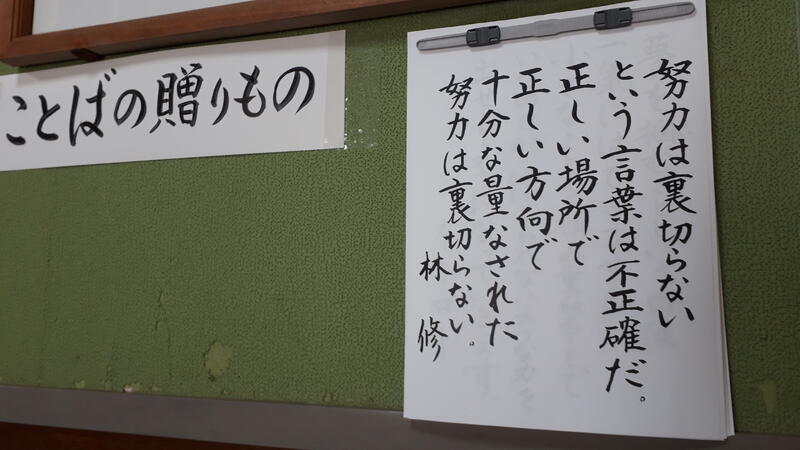 ことばの贈りもの
努力は裏切らない
という言葉は不正確だ。
正しい場所で
正しい方向で
十分な量なされた
努力は裏切らない。
林修